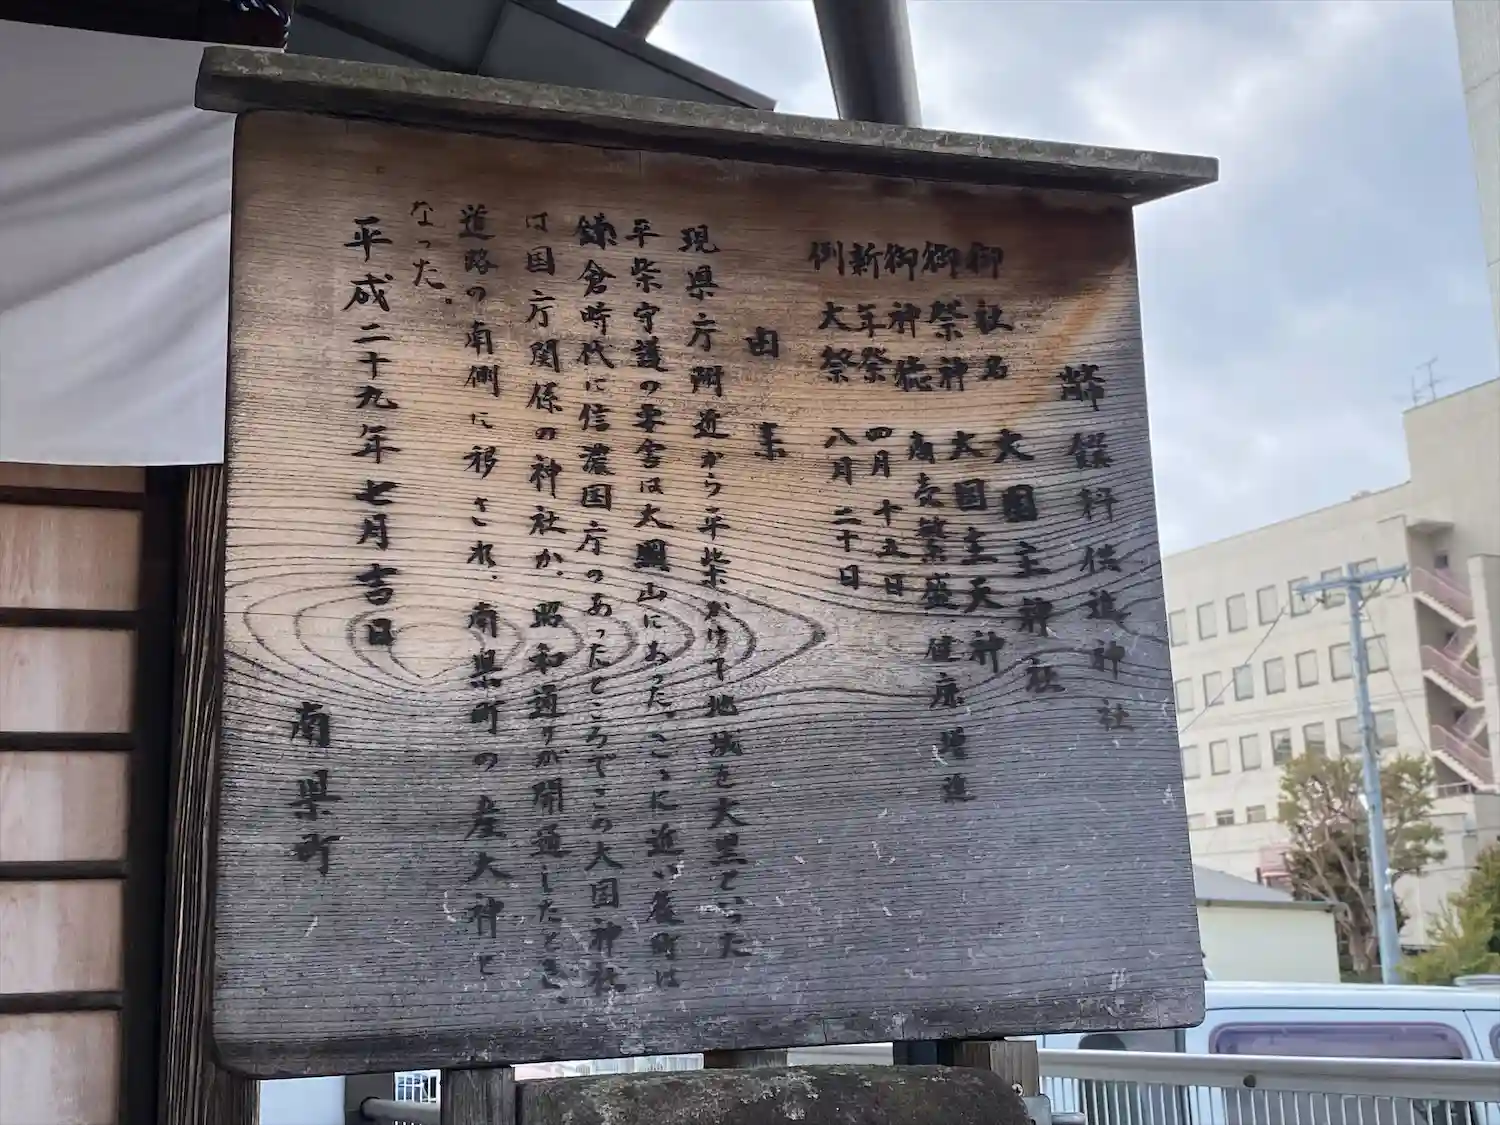 幣饌料供進神社
御社名 大国主神社
御祭神 大国主天神
御神徳 商売繁盛 健康増進
新年祭 四月十五日
例大祭 八月二十日
由来
現県庁附近から平柴かけて地域を大黒といった
平柴守護の要害は大黒山にあった。こゝに近い後町は
鎌倉時代に信濃国庁のあったところでこの大国神社
は国庁関係の神社か、昭和通りが開通したとき、
道路の南側に移され、南県町の産大神と
なった。
平成二十九年七月吉日
南県町